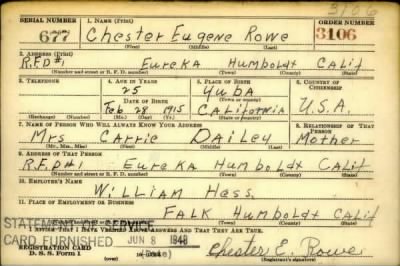 3106
SERIAL NUMBER 1. NAME (Print) ORDER NUMBER
677 Chester Eugene Rowe 3106
(First) (Middle) (Last)
2. ADDRESS (Print)
R.F.D#1 Eureka Humboldt Calif
(Number and street or R. F. D. number) (Town) (County) (State)
3. TELEPHONE 4. AGE IN YEARS 5. PLACE OF BIRTH 6. COUNTRY OF CITIZENSHIP
25 Yuba
DATE OF BIRTH (Town or county)
Feb 28 1915 California U.S.A.
(Exchange) (Number) (Mo.) (Day) (Yr.) (State or country)
7. NAME OF PERSON WHO WILL ALWAYS KNOW YOUR ADDRESS 8. RELATIONSHIP OF THAT PERSON
Mrs Carrie Dailey Mother
(Mr., Mrs., Miss) (First) (Middle) (Last)
9. ADDRESS OF THAT PERSON
R.F.D#1 Eureka Humboldt Calif
(Number and street or R. F. D. number) (Town) (County) (State)
10. EMPLOYER'S NAME
William Hess
11. PLACE OF EMPLOYMENT OR BUSINESS
Falk Humboldt Calif
(Number and street or R. F. D. number) (Town) (County) (State)
I AFFIRM THAT I HAVE VERIFIED ABOVE ANSWERS AND THAT THEY ARE TRUE.
STATEMENT OF SERVICE
CARD FURNISHED JUN 8 1948
(Date)
Chester E. Rowe
REGISTRATION CARD
D. S. S. Form 1 (Registrant's signature)